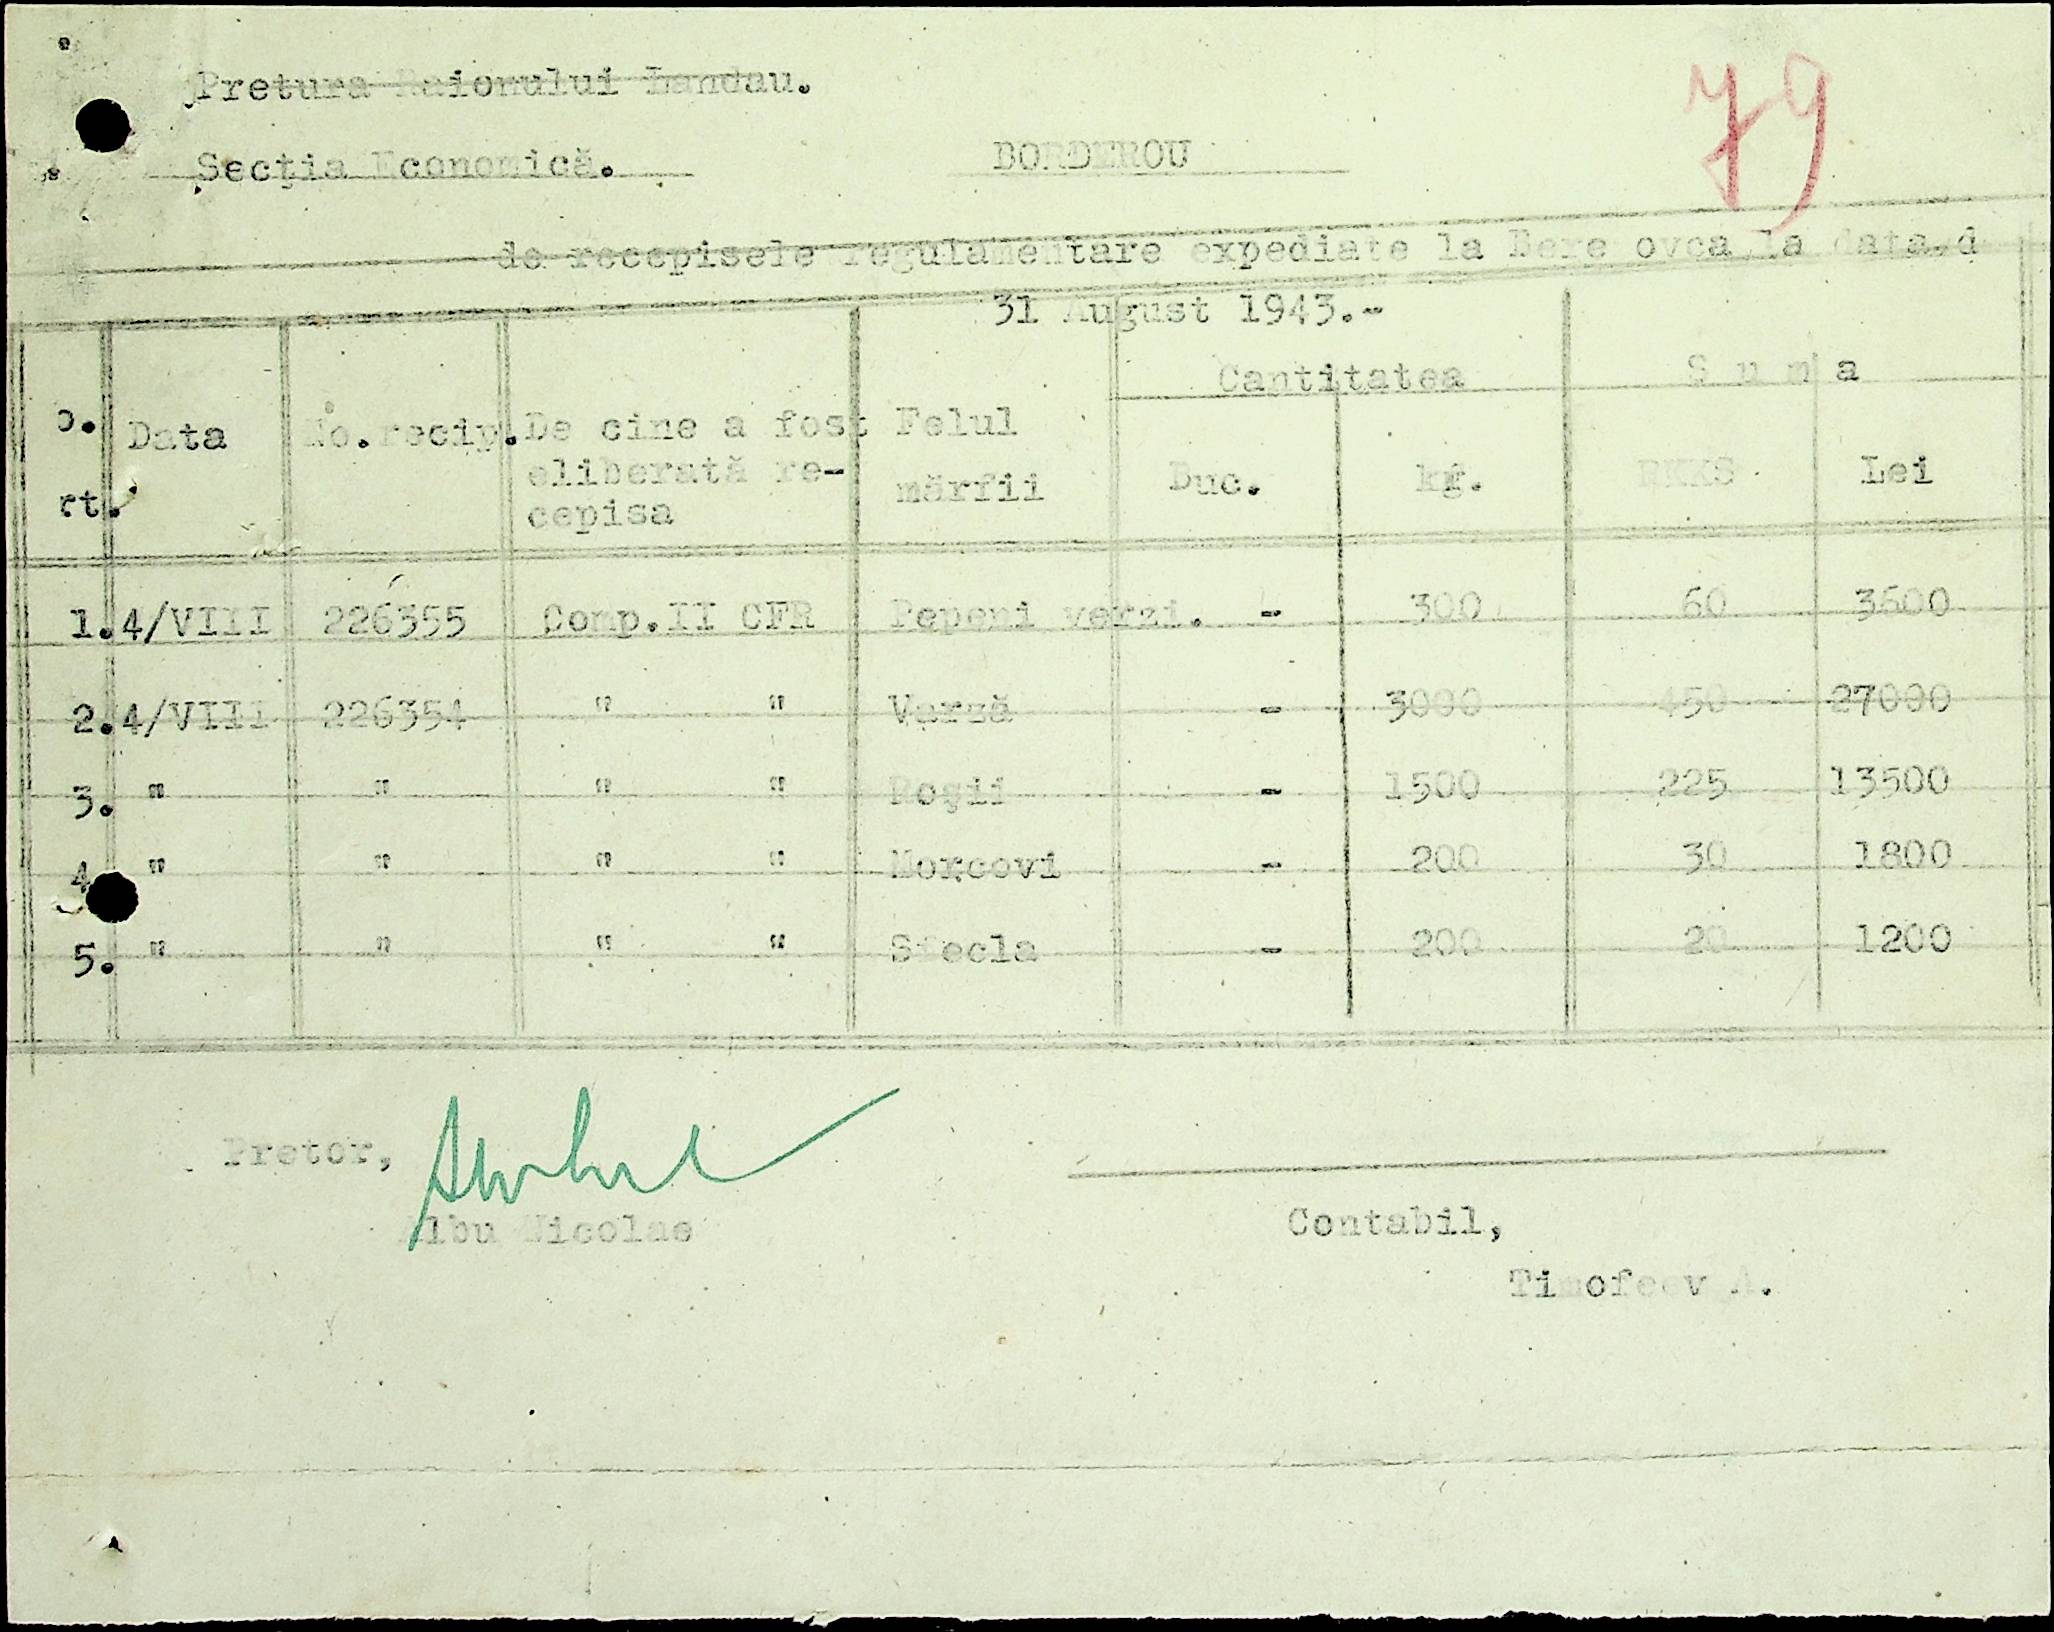 79
Pretura Raionului Landau.
Secția Economică.
BORDEROU
de recepisele regulamentare expediate la Bere ovca la data d
31 August 1943.-
Cantitatea S u m a
o. Data No.recip. De cine a fost Felul
eliberată re- mărfii Duc. kg. RKKS Lei
rt. cepisa
1. 4/VIII 226355 Comp.II CFR Pepeni verzi. - 300 60 3600
2. 4/VIII 226354 " " Varză - 3000 450 27000
3. " " " " Roșii - 1500 225 13500
4 " " " " Morcovi - 200 30 1800
5. " " " " Sfecla - 200 20 1200
Pretor,
Albu Nicolae
Contabil,
Timofeev A.